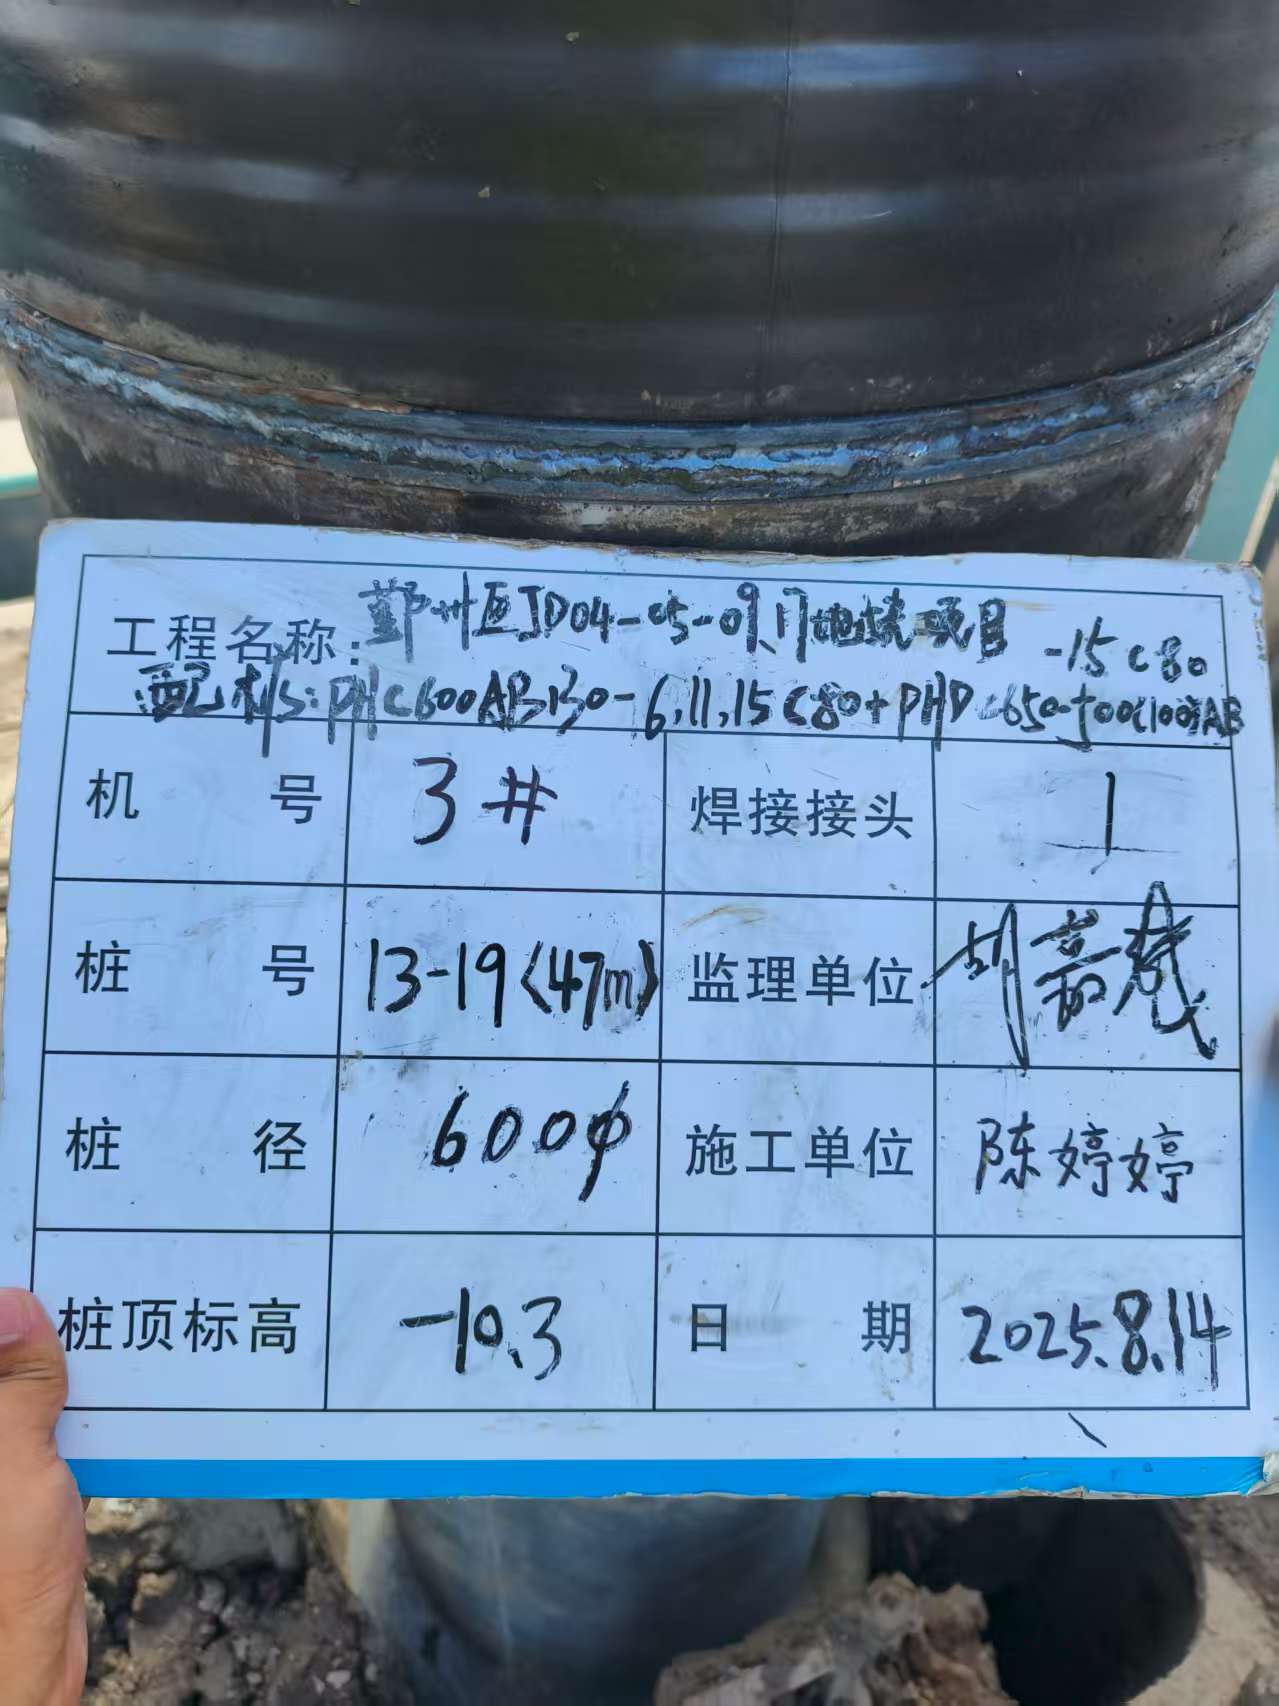 工程名称:鄞州区JD04-05-09、17地块项目
-15 C80
配桩:PHC600AB130-6,11,15 C80+PHDC650-500(100)AB
机号 3# 焊接接头 1
桩号 13-19(47m) 监理单位 胡
桩径 600φ 施工单位 陈婷婷
桩顶标高 -10.3 日期 2025.8.14